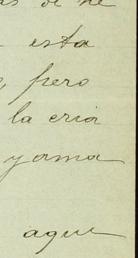 de me
esta
pero
la cria
yama
aque